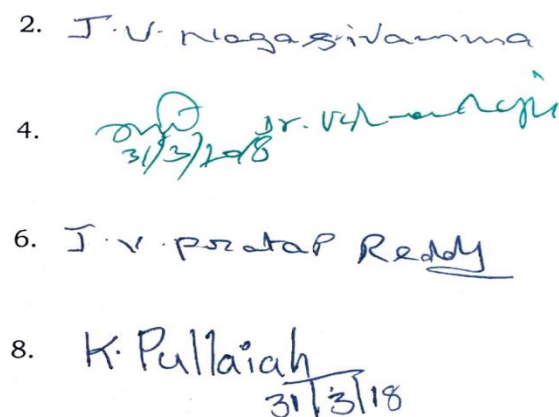 2. J.V. Nagasivamma
4. Dr.
31/3/2018
6. J.V. pratap Reddy
8. K. Pullaiah
31/3/18